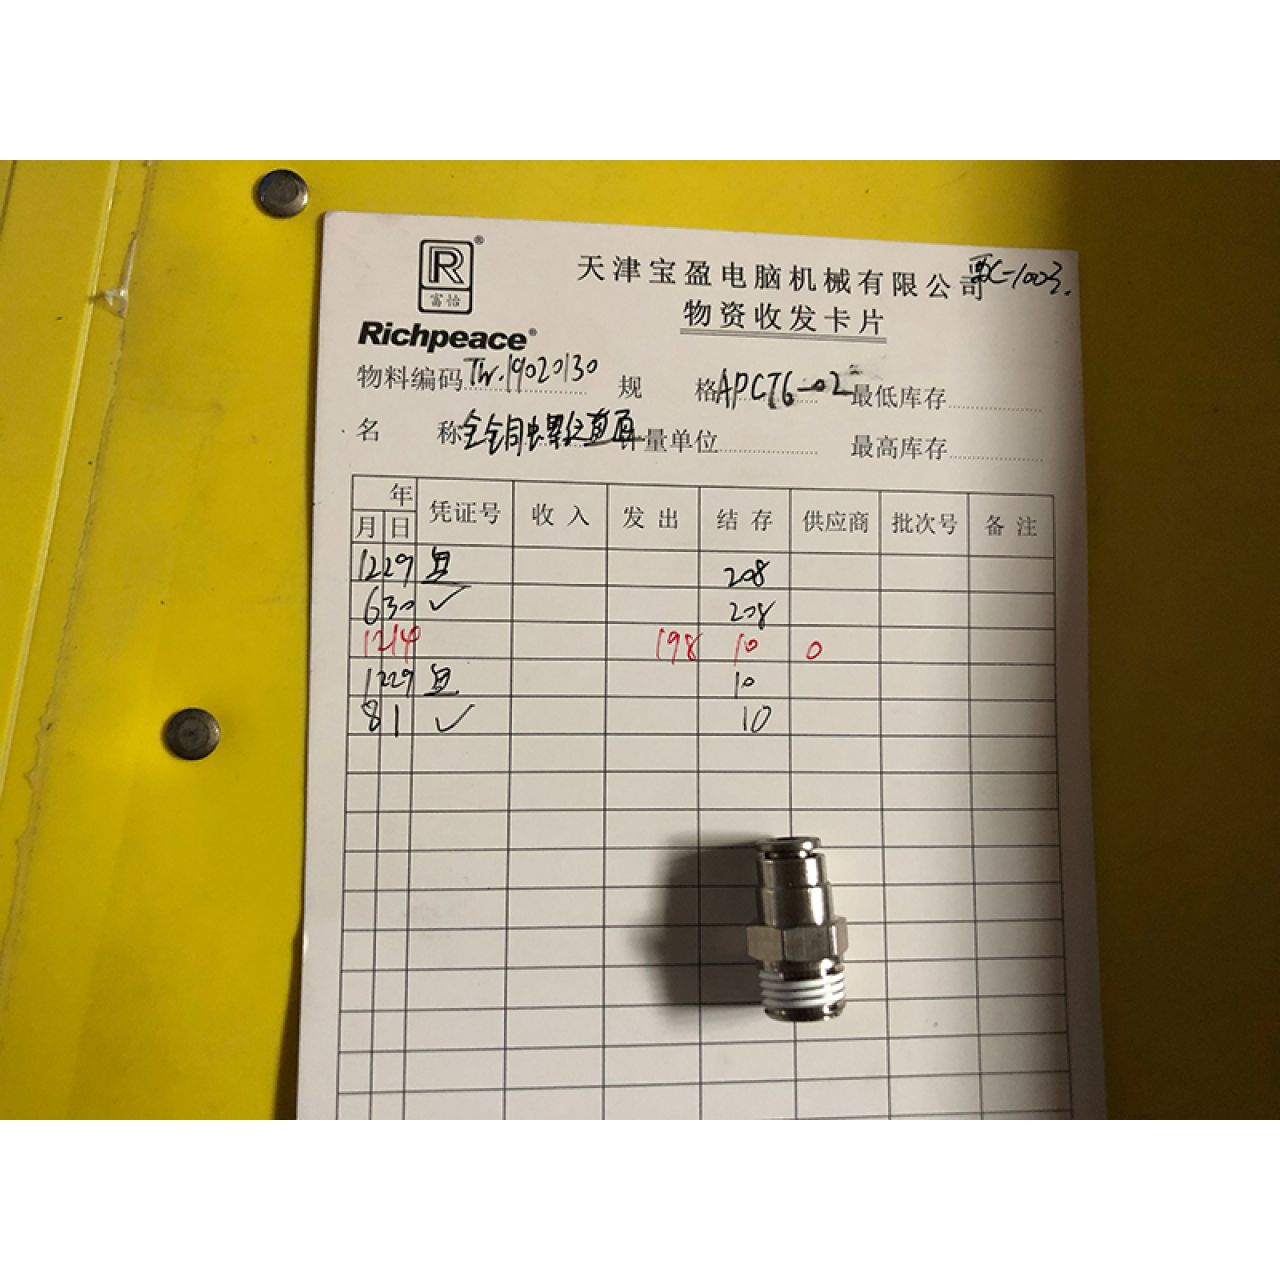 R®
富怡
Richpeace®
天津宝盈电脑机械有限公司
物资收发卡片
物料编码TW.19020130 规格APCT6-02 最低库存
名称全铜螺纹直通 计量单位 最高库存
年 凭证号 收入 发出 结存 供应商 批次号 备注
月 日
12 29 208
6 30 ✓ 208
12 14 198 10 0
12 29 10
8 1 ✓ 10